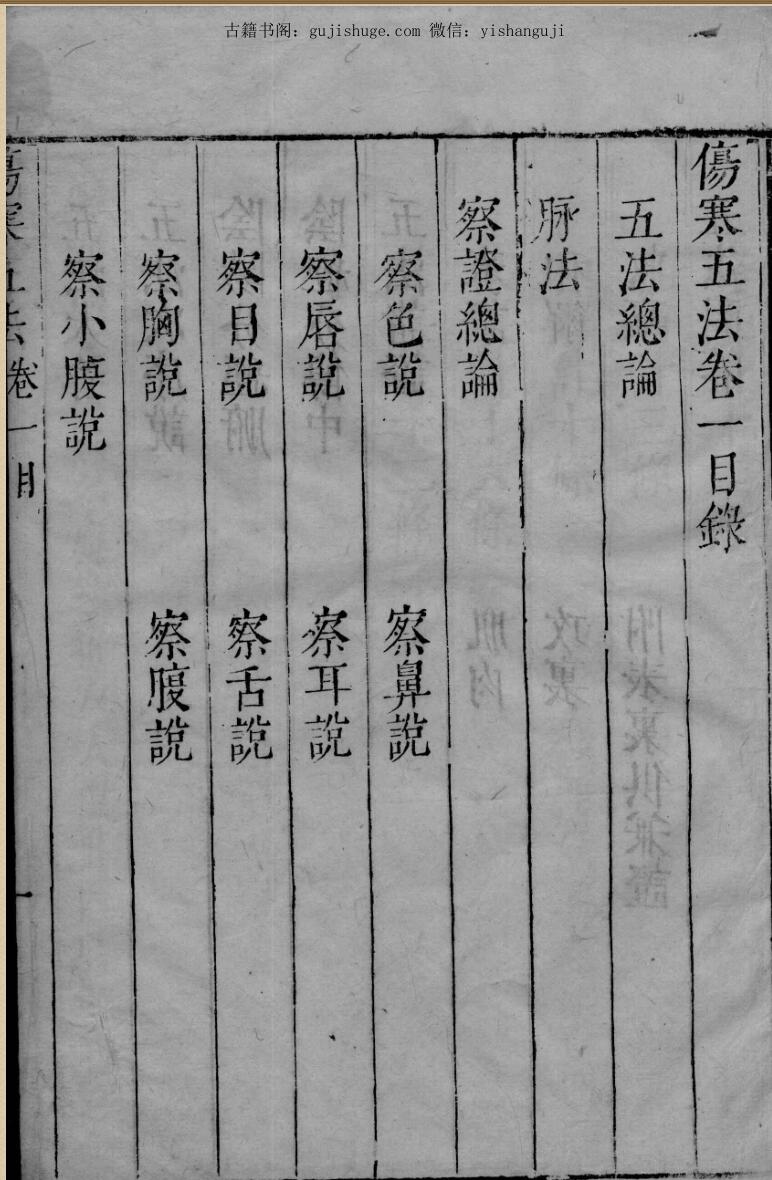 古籍书阁：gujishuge.com 微信：yishanguji
傷寒五法卷一目錄
五法總論
脉法
察證總論
察色說 察鼻說
察唇說 察耳說
察目說 察舌說
察胸說 察腹說
察小腹說
傷寒五法 卷一目 一